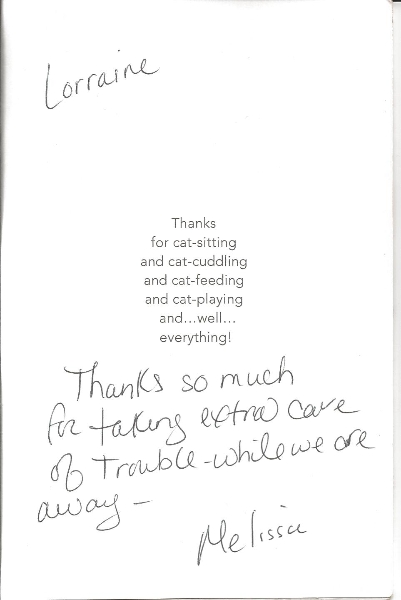 Lorraine
Thanks
for cat-sitting
and cat-cuddling
and cat-feeding
and cat-playing
and...well...
everything!
Thanks so much
for taking extra care
of Trouble-while we are
away-
Melissa